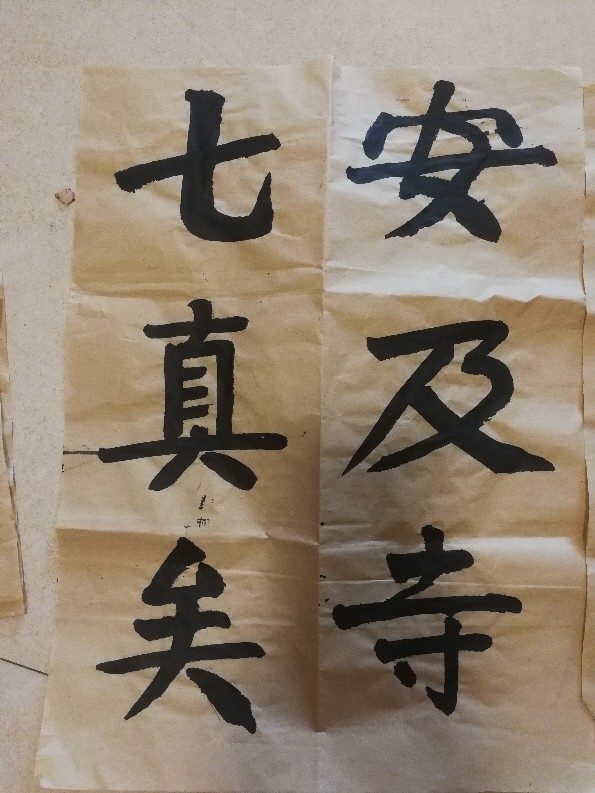 安及寺
七真矣